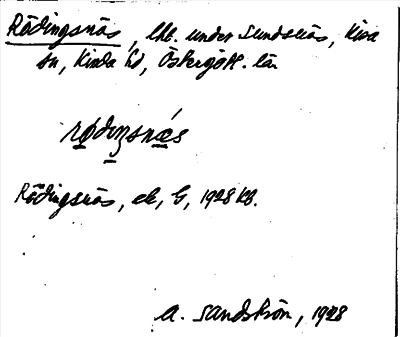 Rödingsnäs, lht. under Sundsnäs, Kisa
sn, Kinda hd, Östergötl. län
rødiŋsnæs
Rödingsnäs, ek, G, 1928 kb.
A. Sandström, 1928